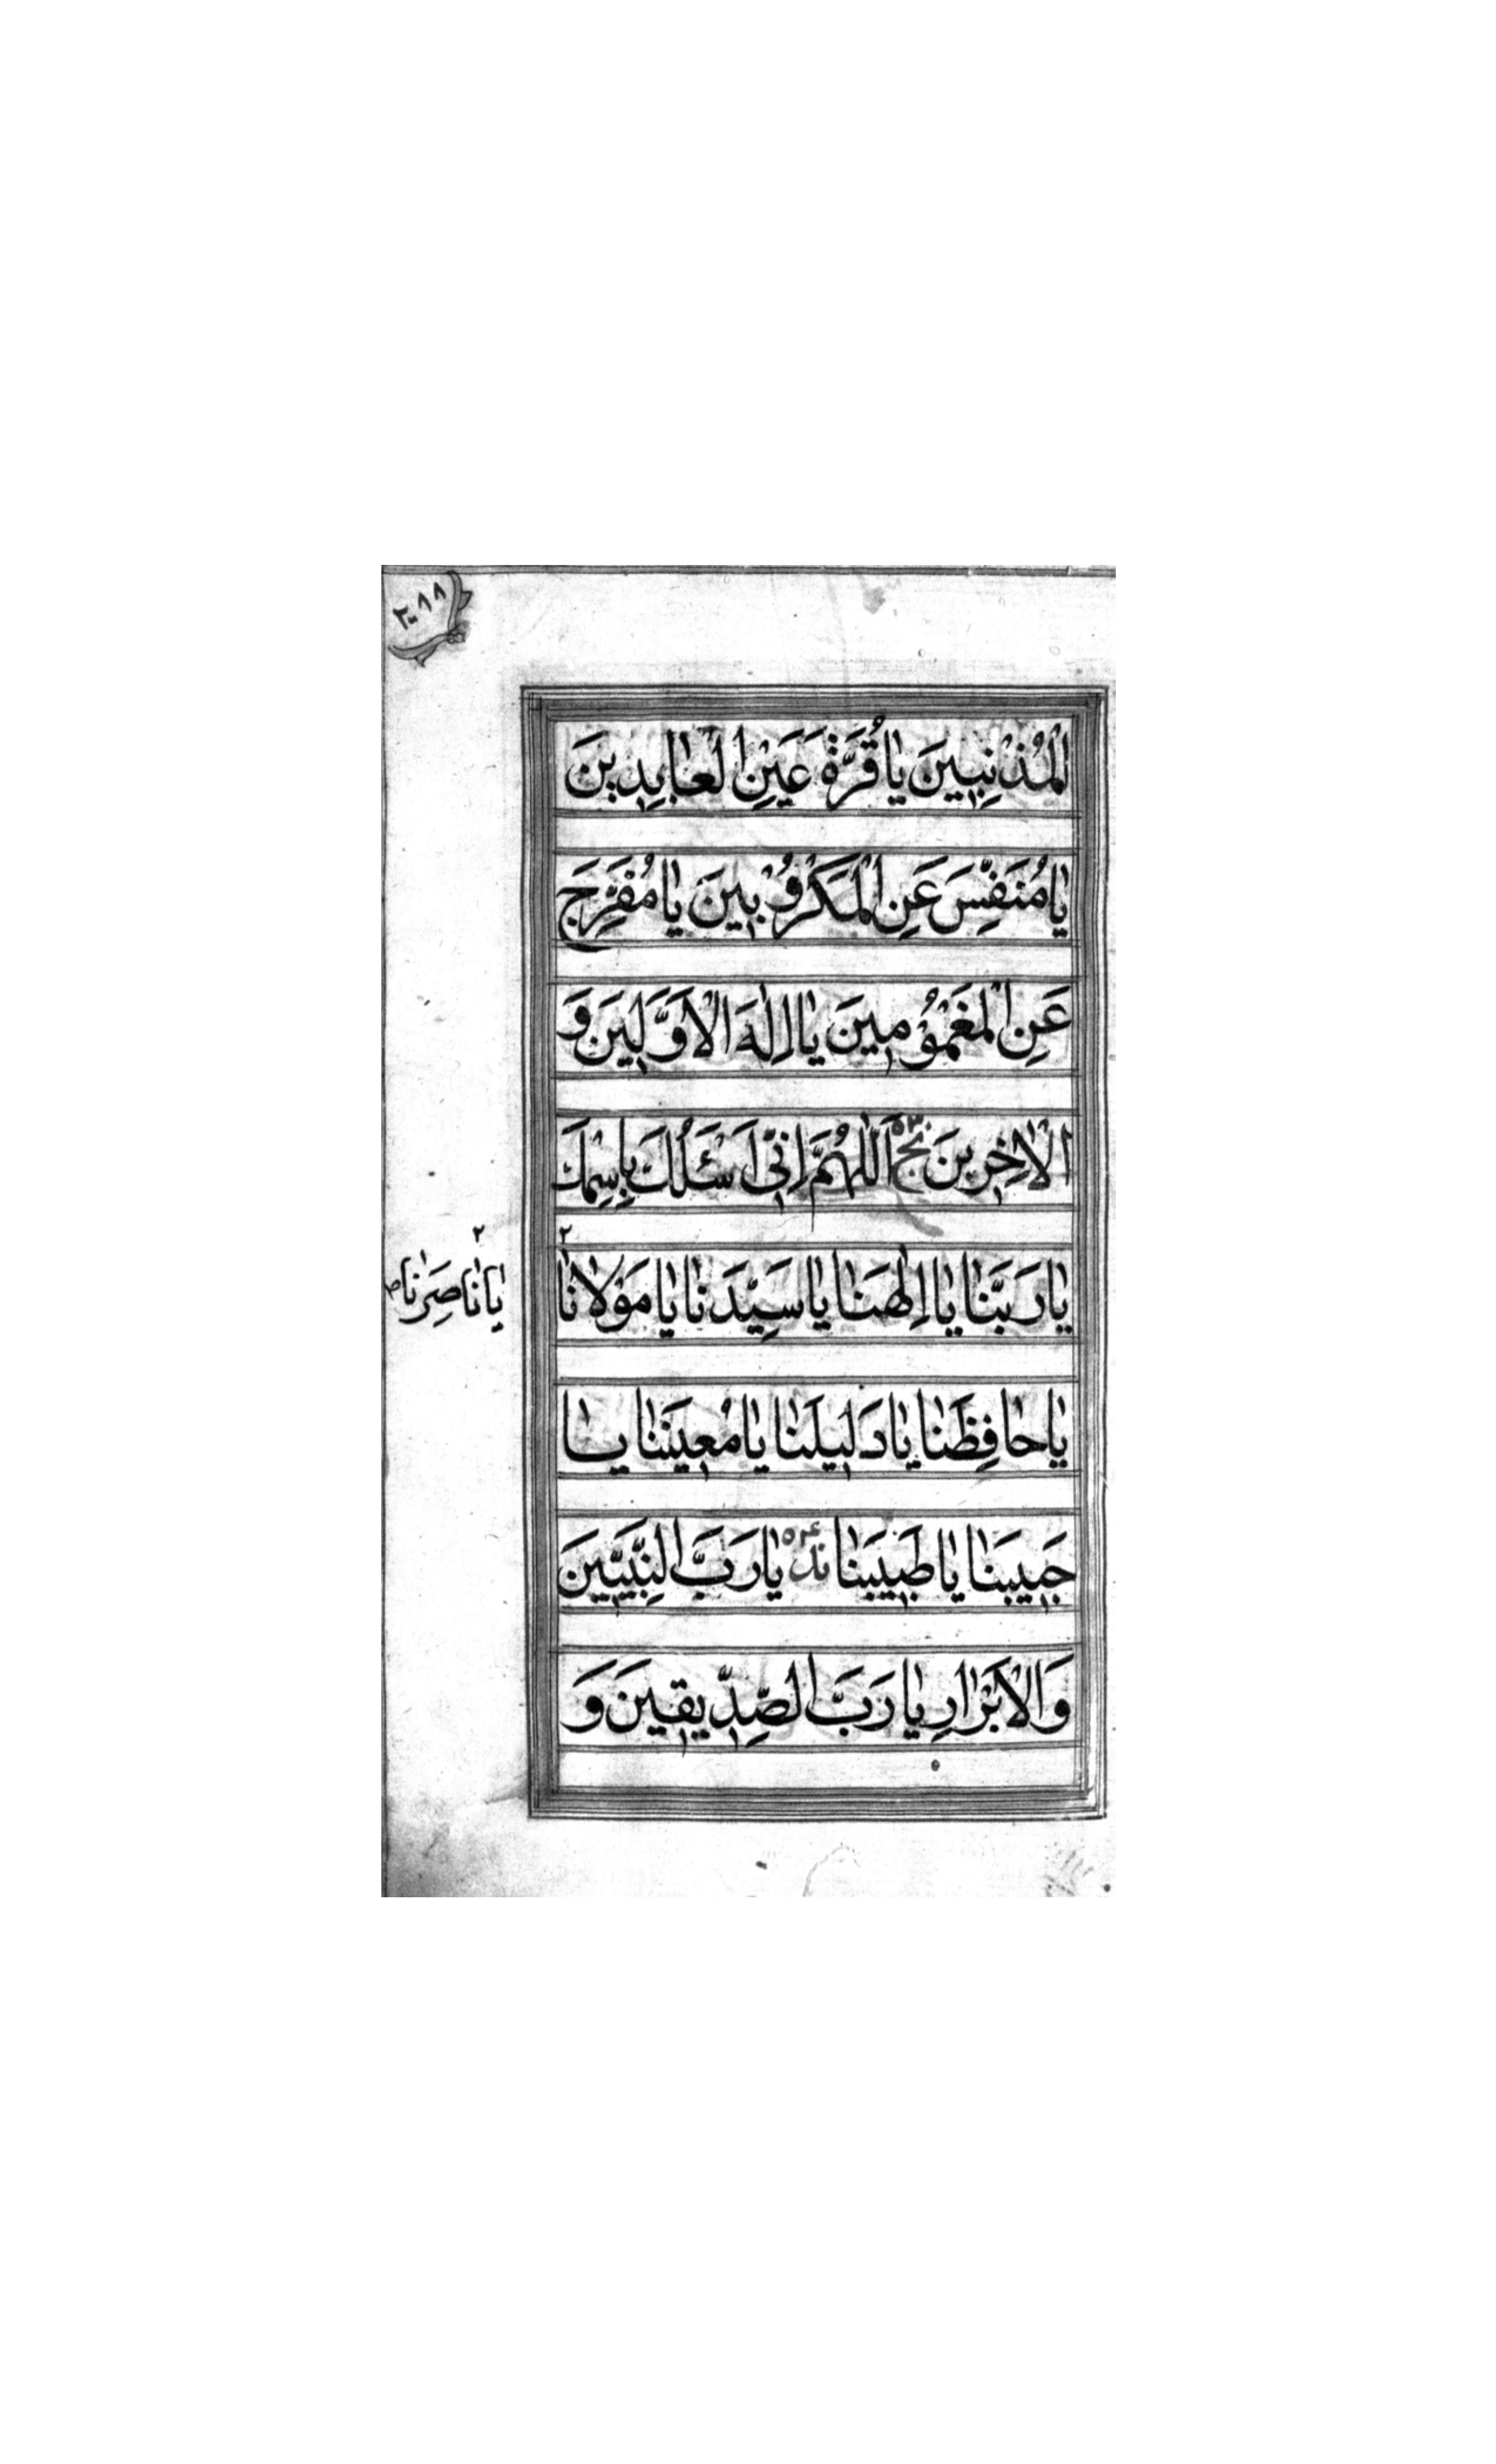 ٢٠٨٨
الْمُذْنِبِينَ يٰا قُرَّةَ عَيْنِ الْعٰابِدِينَ
يٰا مُنَفِّسَ عَنِ الْمَكْرُوْبِينَ يٰا مُفَرِّجَ
عَنِ الْمَغْمُوْمِينَ يٰا اِلٰهَ الْاَوَّلِينَ وَ
الْاٰخِرِينَ نج ٥٣ اَللّٰهُمَّ اِنّٖى اَسْئَلُكَ بِاسْمِكَ
يٰا رَبَّنٰا يٰا اِلٰهَنٰا يٰا سَيِّدَنٰا يٰا مَوْلٰانٰا ٢
٢ يٰا نٰاصِرَنٰا
يٰا حٰافِظَنٰا يٰا دَلِيلَنٰا يٰا مُعِينَنٰا يٰا
حَبِيبَنٰا يٰا طَبِيبَنٰا ند ٥٤ يٰا رَبَّ النَّبِيِّينَ
وَ الْاَبْرٰارِ يٰا رَبَّ الصِّدِّيقِينَ وَ